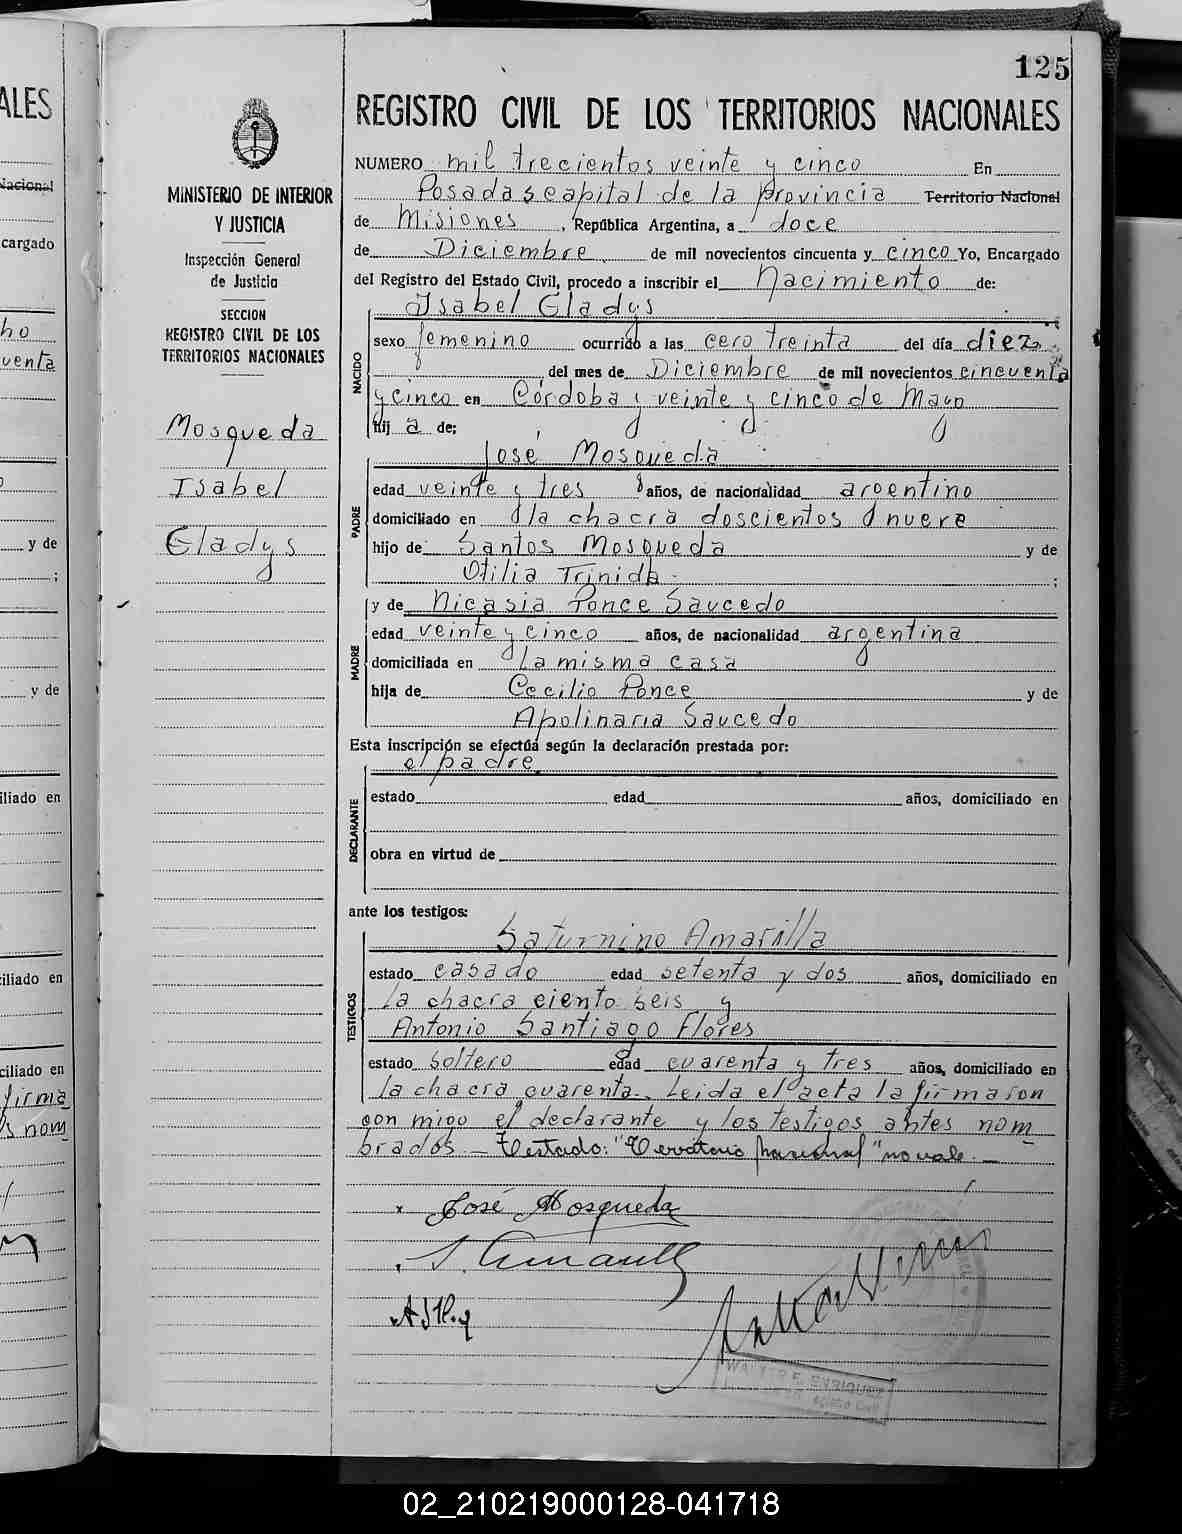 125
REGISTRO CIVIL DE LOS TERRITORIOS NACIONALES
MINISTERIO DE INTERIOR
Y JUSTICIA
Inspección General
de Justicia
SECCION
REGISTRO CIVIL DE LOS
TERRITORIOS NACIONALES
Mosqueda
Isabel
Gladys
NUMERO mil trecientos veinte y cinco En
Posadas capital de la provincia Territorio Nacional
de Misiones, República Argentina, a doce
de Diciembre de mil novecientos cincuenta y cinco Yo, Encargado
del Registro del Estado Civil, procedo a inscribir el Nacimiento de:
Isabel Gladys
NACIDO
sexo femenino ocurrido a las cero treinta del día diez
del mes de Diciembre de mil novecientos cincuenta
y cinco en Córdoba y veinte y cinco de Mayo
hij a de:
José Mosqueda
PADRE
edad veinte y tres años, de nacionalidad argentino
domiciliado en la chacra doscientos nueve
hijo de Santos Mosqueda y de
Otilia Trinida ;
y de Nicasia Ponce Saucedo
MADRE
edad veinte y cinco años, de nacionalidad argentina
domiciliada en la misma casa
hija de Cecilio Ponce y de
Apolinaria Saucedo
Esta inscripción se efectúa según la declaración prestada por:
el padre
DECLARANTE
estado edad años, domiciliado en
obra en virtud de
ante los testigos:
Saturnino Amarilla
TESTIGOS
estado casado edad setenta y dos años, domiciliado en
la chacra ciento seis y
Antonio Santiago Flores
estado soltero edad cuarenta y tres años, domiciliado en
la chacra cuarenta. Leida el acta la firmaron
con migo el declarante y los testigos antes nom
brados. – Testado: "Territorio Nacional" no vale. –
x José Mosqueda
S. Amarilla
WALTER E. ENRIQUEZ
ALES
Nacional
cargado
ho
uenta
y de
;
y de
iliado en
ciliado en
ciliado en
firma
s nom
02_210219000128-041718